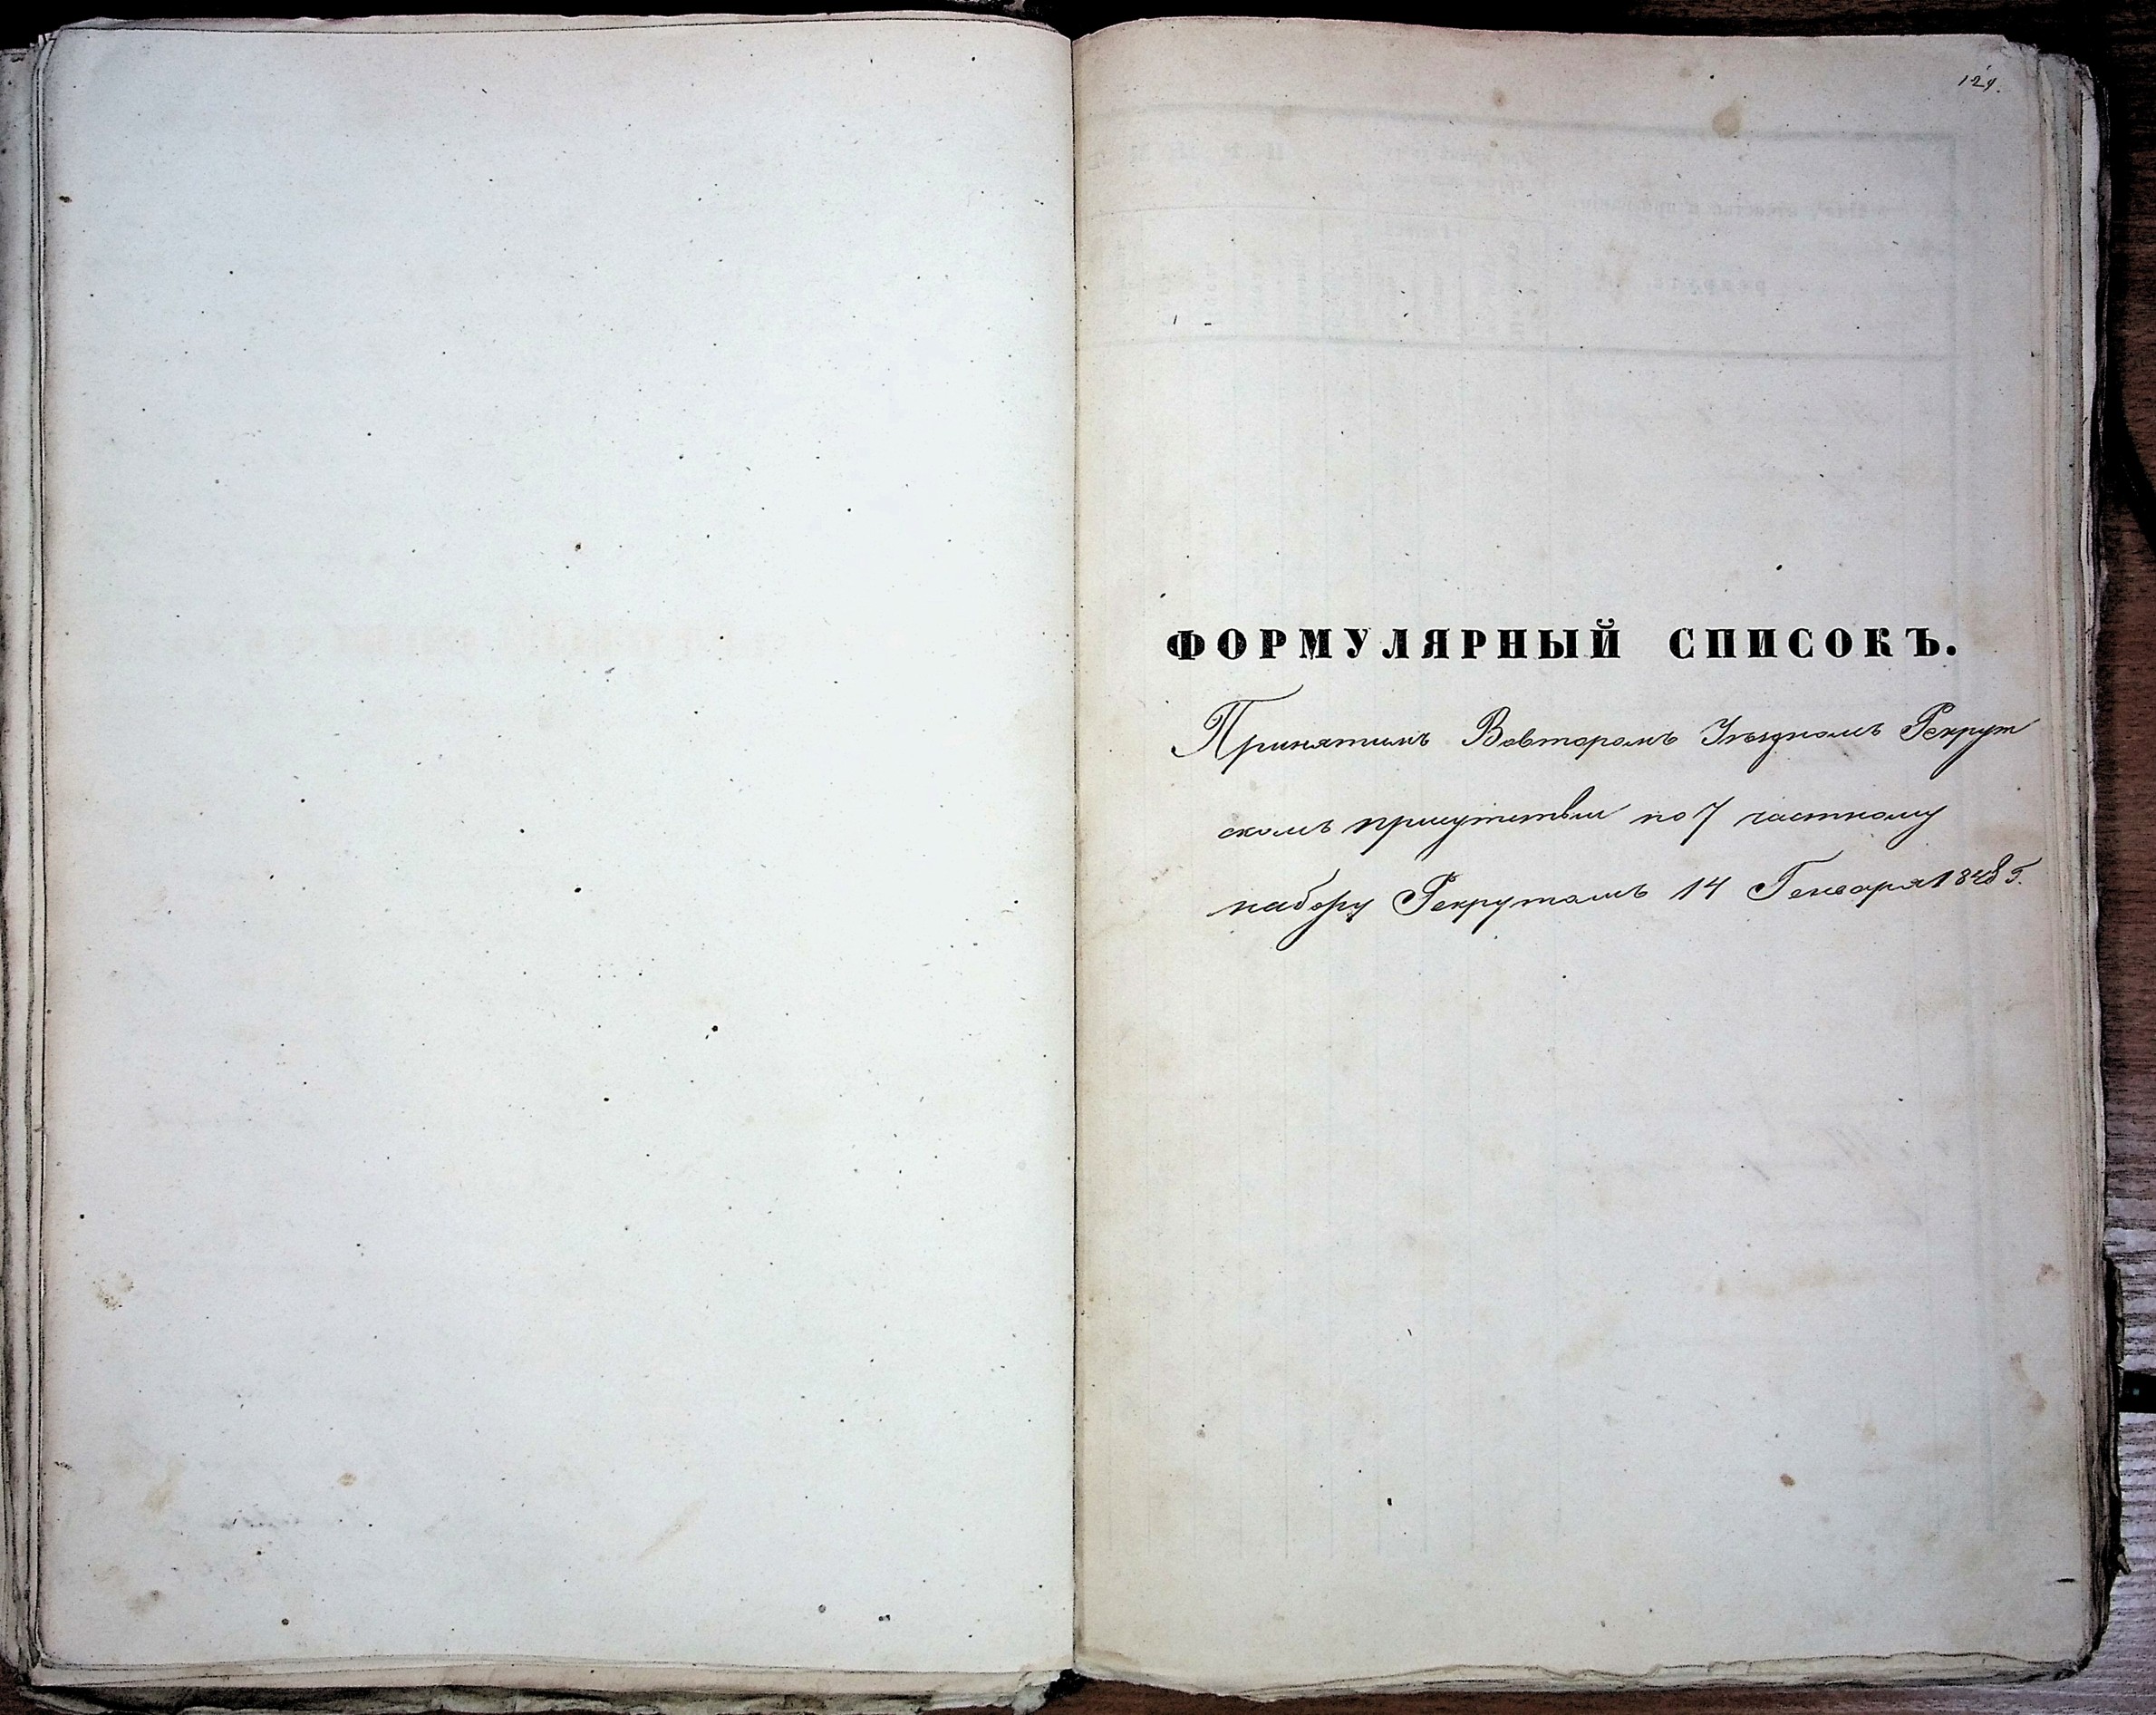 124.
ФОРМУЛЯРНЫЙ СПИСОКЪ.
Принятымъ Вовторомъ Уѣздномъ Рекрут
скомъ присутствіи по 7 частному
набору Рекрутамъ 14 Генваря 1848 г.